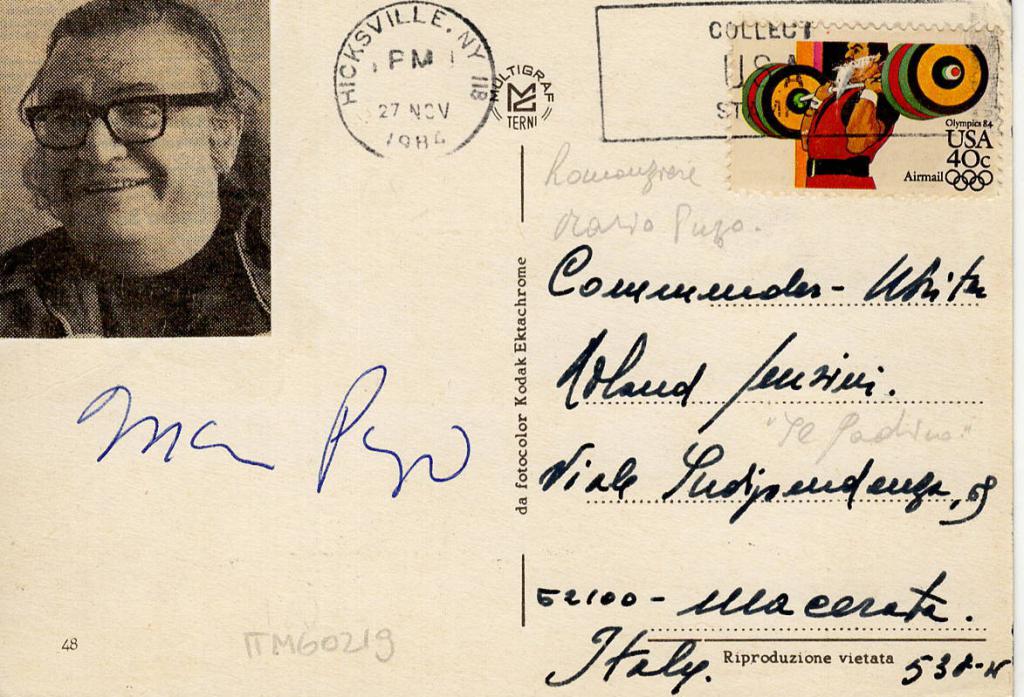 HICKSVILLE, NY 118
PM
27 NOV
1984
MULTIGRAF
TERNI
COLLECT
USA
Olympics 84
USA
40c
Airmail
Romanziere
Mario Puzo.
Commander - 
Roland 
"Il Padrino"
Viale Indipendenza,
52100 - Macerata.
Italy.
538-N
Mario Puzo
da fotocolor Kodak Ektachrome
48
ITM60219
Riproduzione vietata